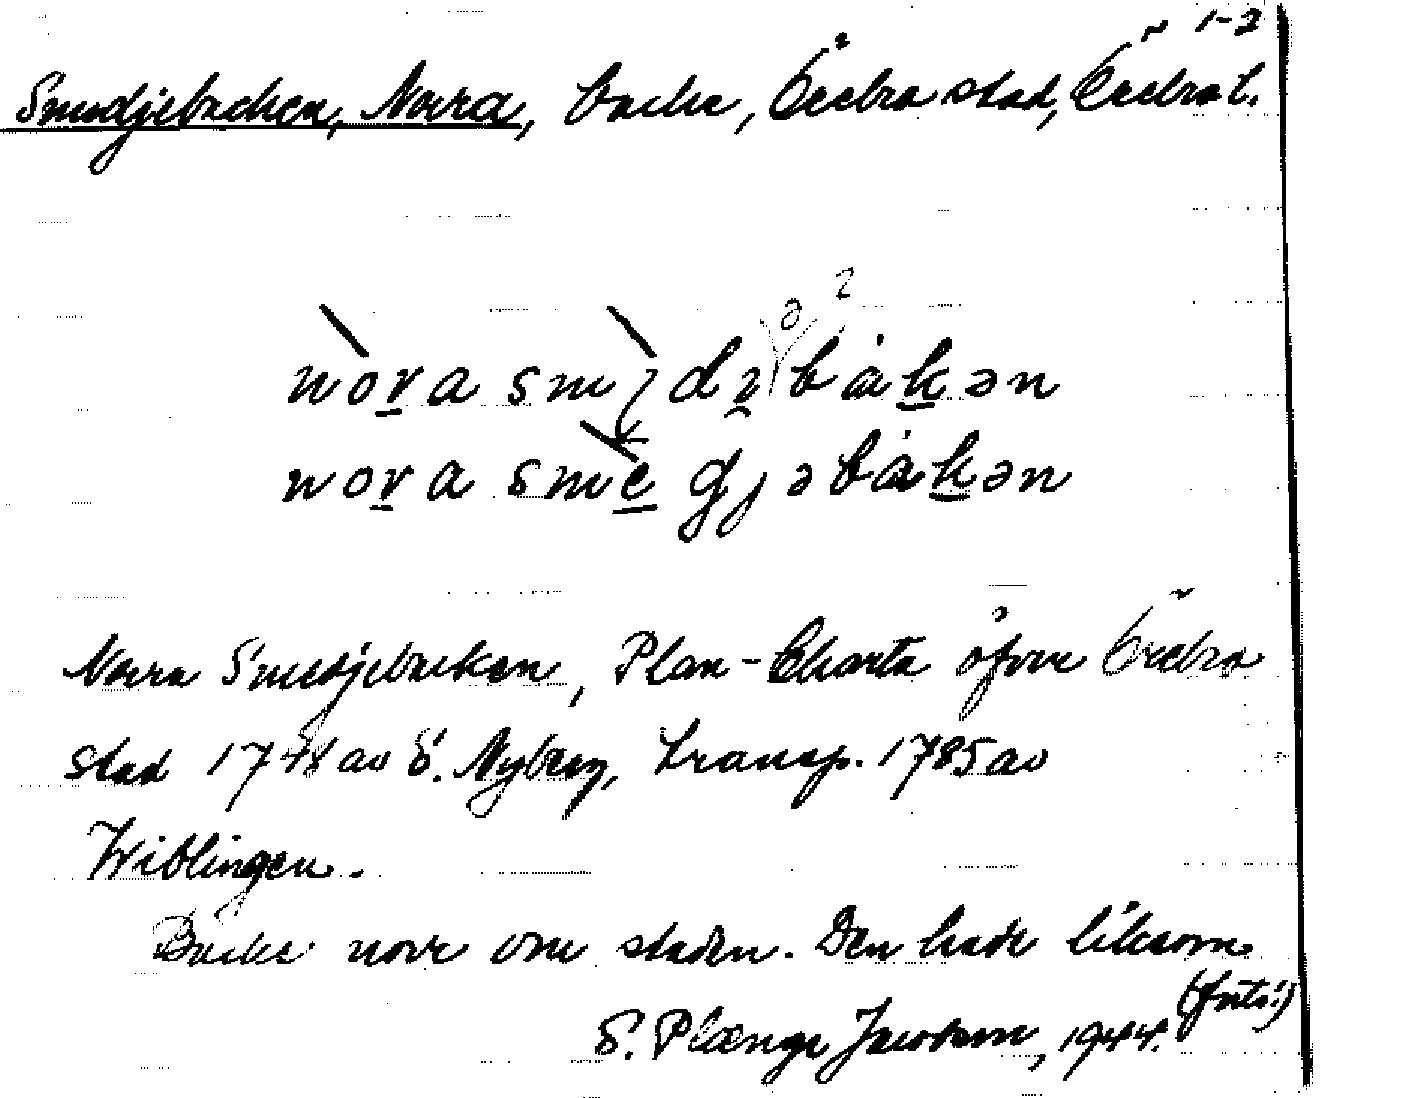 1-2
Smedjebacken, Norra, backe, Örebro stad, Örebro l.
nora smedjəbakən
Norra Smedjebacken, Plan-Charta öfver Örebro
stad 1778 av S. Nyberg, transp. 1785 av
Wiblingen.
Backe norr om staden. Den hade liksom
(forts.)
S. Plænge Jacobson, 1944.